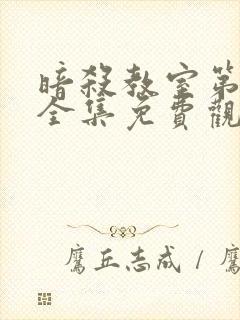 暗殺教室第
全集免費觀
鷹丘志成 / 鷹